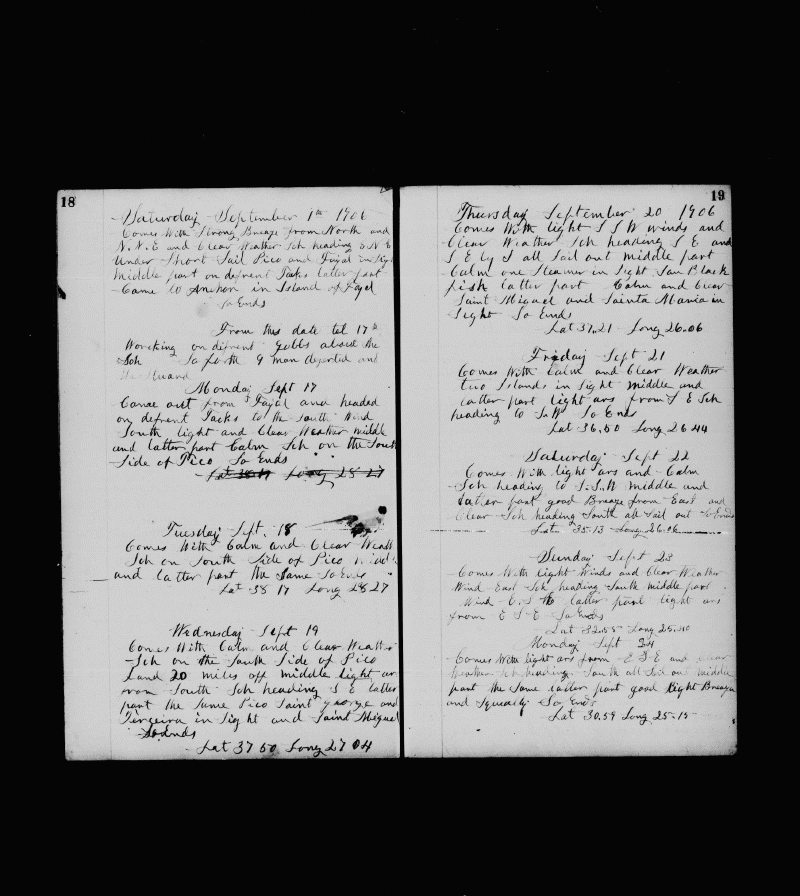 18
Saturday September 1st 1906
Comes With Strong Breaze from North and
N.N.E and Clear Weather Sch heading E N E
Under Short Sail Pico and Fayal in Sigt
Middle part on defrent Tacks latter part
Came to Anchor in Island of Fayal
So Ends
From this date tel 17th
Worcking on defrent gobbs about the
Sch So forth 9 man deperted and
Monday Sept 17
Came out from Fayal and headed
on defrent Tacks to the South Wind
South light and Clear Weather middl
and latter part Calm Sch on the South
Side of Pico So Ends
Lat 38 17 Long 28 27
Tuesday Spt. 18
Comes With Calm and Clear Weath
Sch on South Side of Pico
and latter part the Same So Ends
Lat 38 17 Long 28 27
Wednesday Sept 19
Comes With Calm and Clear Weather
Sch on the South Side of Pico
Land 20 miles off middle light ar
from South Sch heading S E latter
part the Same Pico Saint George and
Terceira in Sight and Saint Miguel
So Ends
Lat 37 50 Long 27 04
19
Thursday September 20 1906
Comes With light S S W winds and
Clear Weather Sch heading S E and
S E by S all Sail out middle part
Calm one Steamer in Sight Saw Black
fish latter part Calm and Clear
Saint Miguel and Sainta Maria in
Sight So Ends
Lat 37.21 Long 26.06
Friday Sept 21
Comes With Calm and Clear Weather
two Islands in Sight middle and
latter part light ars from S E Sch
heading to S.W So Ends
Lat 36,50 Long 26 44
Saturday Sept 22
Comes With light ars and Calm
Sch heading to S.S.W middle and
latter part good Breaze from East and
Clear Sch heading South all Sail out So Ends
Lat 35-13 Long 26.06
Sunday Sept 23
Comes With light Winds and Clear Weather
Wind East Sch heading South middle part
Wind latter part light ars
from E S E So Ends
Lat 32.55 Long 25.40
Monday Sept 24
Comes With light ars from E S E and Clear
Weather Sch heading South all Sail out middle
part the Same latter part good light Breaze
and Squaly So Ends
Lat 30.59 Long 25-15